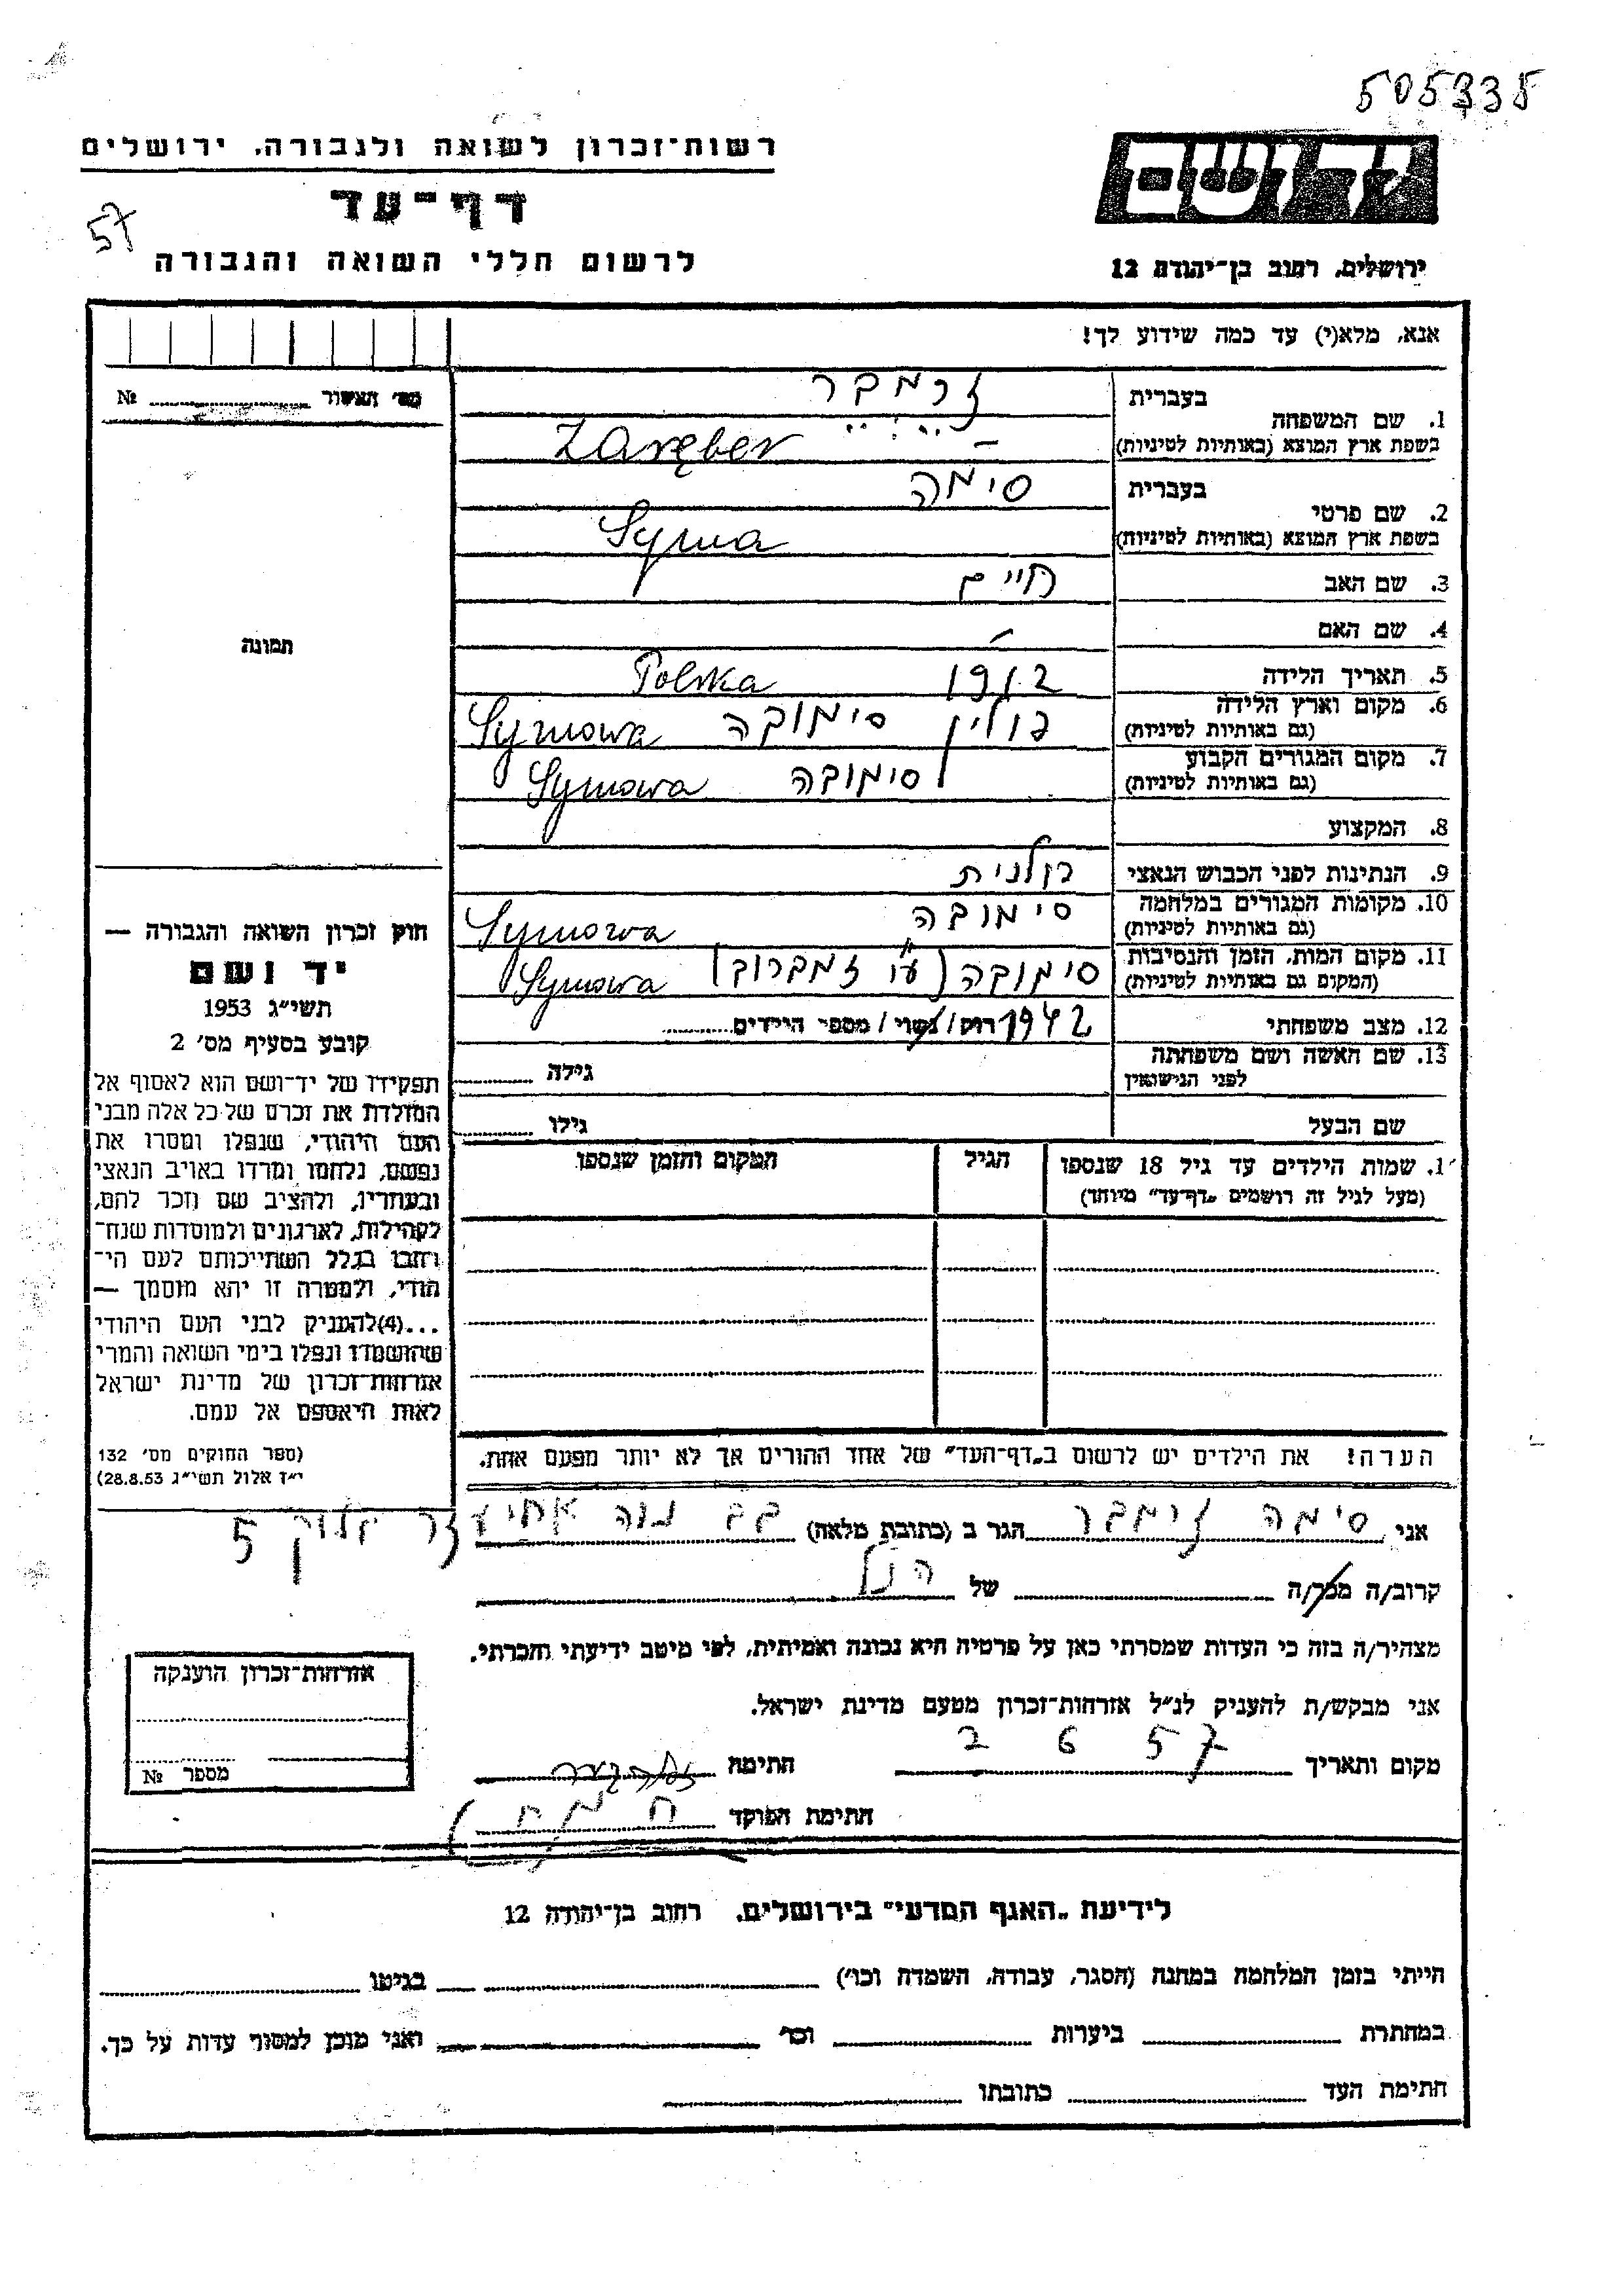 505335
רשות־זכרון לשואה ולגבורה, ירושלים
דף־עד
57
לרשום חללי השואה והגבורה
ירושלים, רחוב בן־יהודה 12
אנא, מלא(י) עד כמה שידוע לך!
מס׳ תאשור № 
1. שם המשפחה
בעברית זרמבר
בשפת ארץ המוצא (באותיות לטיניות) Zaręber
2. שם פרטי
בעברית סימה
בשפת ארץ המוצא (באותיות לטיניות) Syma
3. שם האב חיים
4. שם האם –
תמונה
5. תאריך הלידה 1912 Polska
6. מקום וארץ הלידה פולין סימובה Symowa
(גם באותיות לטיניות)
7. מקום המגורים הקבוע סימובה Symowa
(גם באותיות לטיניות)
8. המקצוע
9. הנתינות לפני הכבוש הנאצי פולנית
10. מקומות המגורים במלחמה סימובה Symowa
(גם באותיות לטיניות)
11. מקום המות, הזמן והנסיבות סימובה (ע״י זמברוב) Symowa
(המקום גם באותיות לטיניות)
12. מצב משפחתי 1942 רוק/נשוי/מספר הילדים
13. שם האשה ושם משפחתה
לפני הנישואין
גילה
שם הבעל
גילו
1. שמות הילדים עד גיל 18 שנספו
(מעל לגיל זה רושמים „דף־עד״ מיוחד)
הגיל
המקום והזמן שנספו
חוק זכרון השואה והגבורה —
יד ושם
תשי״ג 1953
קובע בסעיף מס׳ 2
תפקידו של יד־ושם הוא לאסוף אל
המולדת את זכרם של כל אלה מבני
העם היהודי, שנפלו ומסרו את
נפשם, נלחמו ומרדו באויב הנאצי
ובעוזריו, ולהציב שם וזכר להם,
לקהילות, לארגונים ולמוסדות שנח־
רבו בגלל השתייכותם לעם הי־
הודי, ולמטרה זו יהא מוסמך —
...(4)להעניק לבני העם היהודי
שהושמדו ונפלו בימי השואה והמרי
אזרחות־זכרון של מדינת ישראל
לאות היאספם אל עמם.
(ספר החוקים מס׳ 132
י״ז אלול תשי״ג 28.8.53)
הערה! את הילדים יש לרשום ב„דף־העד״ של אחד ההורים אך לא יותר מפעם אחת.
אני, סימה הגר ב (כתובת מלאה) נוה אחיעזר בלוק 5
קרוב/ה מכר/ה של הנ״ל
מצהיר/ה בזה כי העדות שמסרתי כאן על פרטיה היא נכונה ואמיתית, לפי מיטב ידיעתי והכרתי.
אני מבקש/ת להעניק לנ״ל אזרחות־זכרון מטעם מדינת ישראל.
מקום ותאריך 2 6 57 חתימה
חתימת הפוקד
אזרחות־זכרון הוענקה
מספר №
לידיעת „האגף המדעי״ בירושלים, רחוב בן־יהודה 12
הייתי בזמן המלחמה במחנה (הסגר, עבודה, השמדה וכו׳) בגיטו
במחתרת ביערות וכו׳ ואני מוכן למסור עדות על כך.
חתימת העד כתובתו